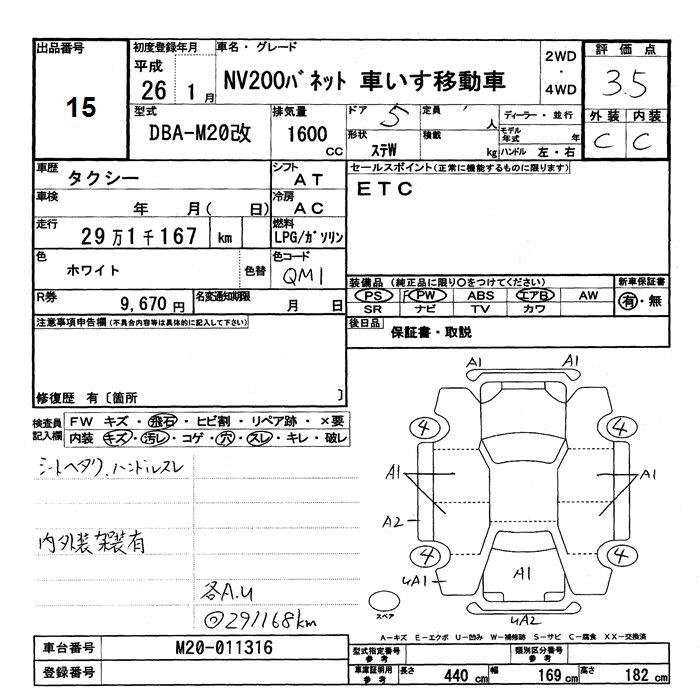 出品番号 15
初度登録年月 平成 26年 1月
車名・グレード NV200バネット 車いす移動車
2WD・4WD
評価点 3.5
外装 C 内装 C
型式 DBA-M20改
排気量 1600 CC
ドア 5 定員 人
形状 ステW 積載 kg
ディーラー・並行
モデル年式 年
ハンドル 左・右
車歴 タクシー
シフト AT
車検 年 月( 日)
冷房 AC
走行 29万1千167 km
燃料 LPG/ガソリン
色 ホワイト 色替
色コード QM1
R券 9,670円 名変通知期限 月 日
セールスポイント(正常に機能するものに限ります)
ETC
装備品(純正品に限り○をつけてください) 新車保証書
PS PW ABS エアB AW 有・無
SR ナビ TV カワ
後日品 保証書・取説
注意事項申告欄(不具合内容等は具体的に記入して下さい)
修復歴 有〔箇所 〕
検査員記入欄
FW キズ・飛石・ヒビ割・リペア跡・×要
内装 キズ・汚レ・コゲ・穴・スレ・キレ・破レ
シートヘタリ、ハンドルスレ
内外装架装有
各A.U
◎291168km
A1 A1
4 4
A1 A1
A2
4 4
uA1 A1
uA2
スペア
A-キズ E-エクボ U-凹み W-補修跡 S-サビ C-腐食 XX-交換済
車台番号 M20-011316
登録番号
型式指定番号 参考 類別区分番号 参考
車庫証明用 参考 長さ 440cm 幅 169cm 高さ 182cm